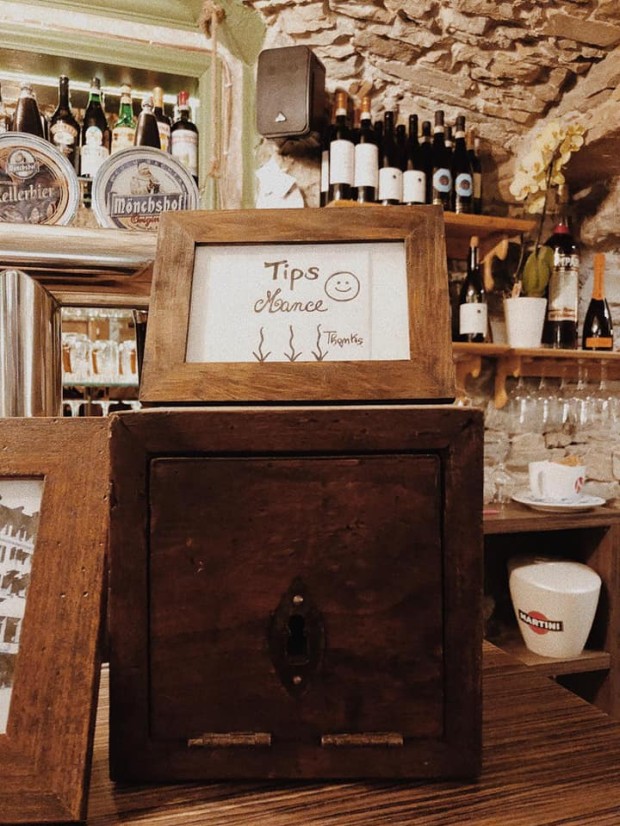 Kellerbier
Mönchshof
Tips
Mance
Thanks
MARTINI